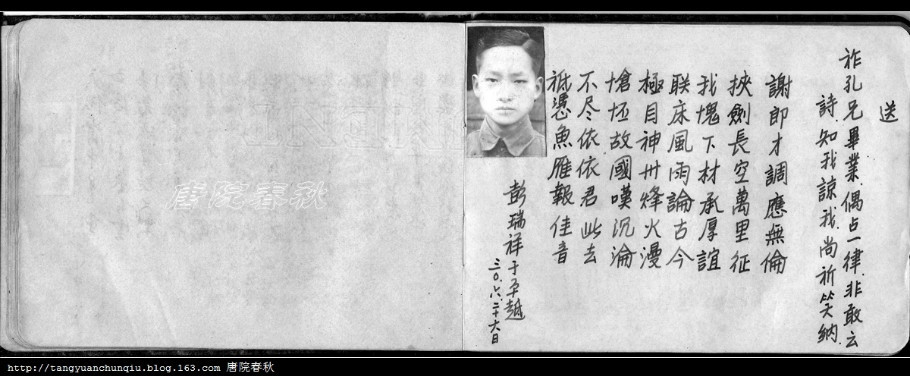 送
祚孔兄畢業,偶占一律,非敢云
詩,知我諒我,尚祈笑納
謝即才調應無倫
挾劍長空萬里征
我愧下材承厚誼
联床風雨論古今
極目神卅烽火漫
愴怌故國嘆沉淪
不尽依依君此去
祗憑魚雁報佳音
彭瑞祥于平越
三〇.六.二十六日
唐院春秋
http://tangyuanchunqiu.blog.163.com 唐院春秋